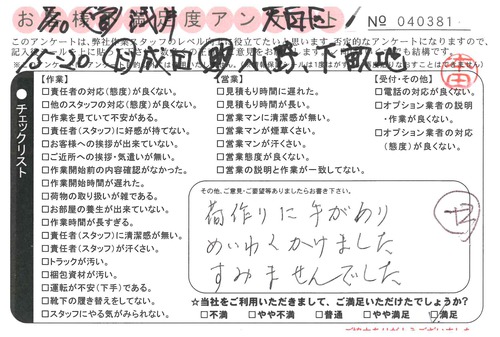 お客様満足度アンケート
№ 040381
このアンケートは、弊社作業スタッフのレベル向上に役立てたいと思います。否定的なアンケートになりますので、
【作業】
□責任者の対応(態度)が良くない。
□他のスタッフの対応(態度)が良くない。
□作業を見ていて不安がある。
□責任者(スタッフ)に好感が持てない。
□お客様への挨拶が出来ていない。
□ご近所への挨拶・気遣いが無い。
□作業開始前の内容確認がなかった。
□作業開始時間が遅れた。
□荷物の取り扱いが雑である。
□お部屋の養生が出来ていない。
□作業時間が長すぎる。
□責任者(スタッフ)に清潔感が無い。
□責任者(スタッフ)が汗くさい。
□トラックが汚い。
□梱包資材が汚い。
□運転が不安(下手)である。
□靴下の履き替えをしてない。
□スタッフにやる気がみられない。
【営業】
□見積もり時間に遅れた。
□見積もり時間が長い。
□営業マンに清潔感が無い。
□営業マンが煙草くさい。
□営業マンが汗くさい。
□営業態度が良くない。
□営業の説明と作業が一致してない。
【受付・その他】
□電話の対応が良くない。
□オプション業者の説明
・作業が良くない。
□オプション業者の対応
(態度)が良くない。
●チェックリスト
その他、ご意見・ご要望等ありましたらお書き下さい。
荷作りに手がかり
めいわくかけました
すみませんでした
☆当社をご利用いただきまして、ご満足いただけたでしょうか?
□不満 □やや不満 □普通 □やや満足 □満足